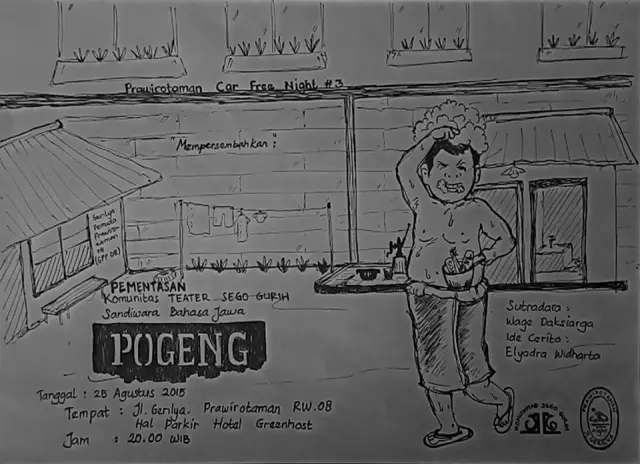 Prawirotaman Car Free Night #3
"Mempersembahkan":
Gerilya
Pemuda
Prawiro-
taman
(GPP 08)
PEMENTASAN
Komunitas TEATER SEGO GURIH
Sandiwara Bahasa Jawa
POGENG
Tanggal : 25 Agustus 2015
Tempat : Jl. Gerilya. Prawirotaman RW.08
Hal Parkir Hotel Greenhost
Jam : 20.00 WIB
Sutradara :
Wage Daksiarga
Ide Cerita :
Elyadra Widharta
KOMUNITAS SEGO GURIH
PRAWIROTAMAN